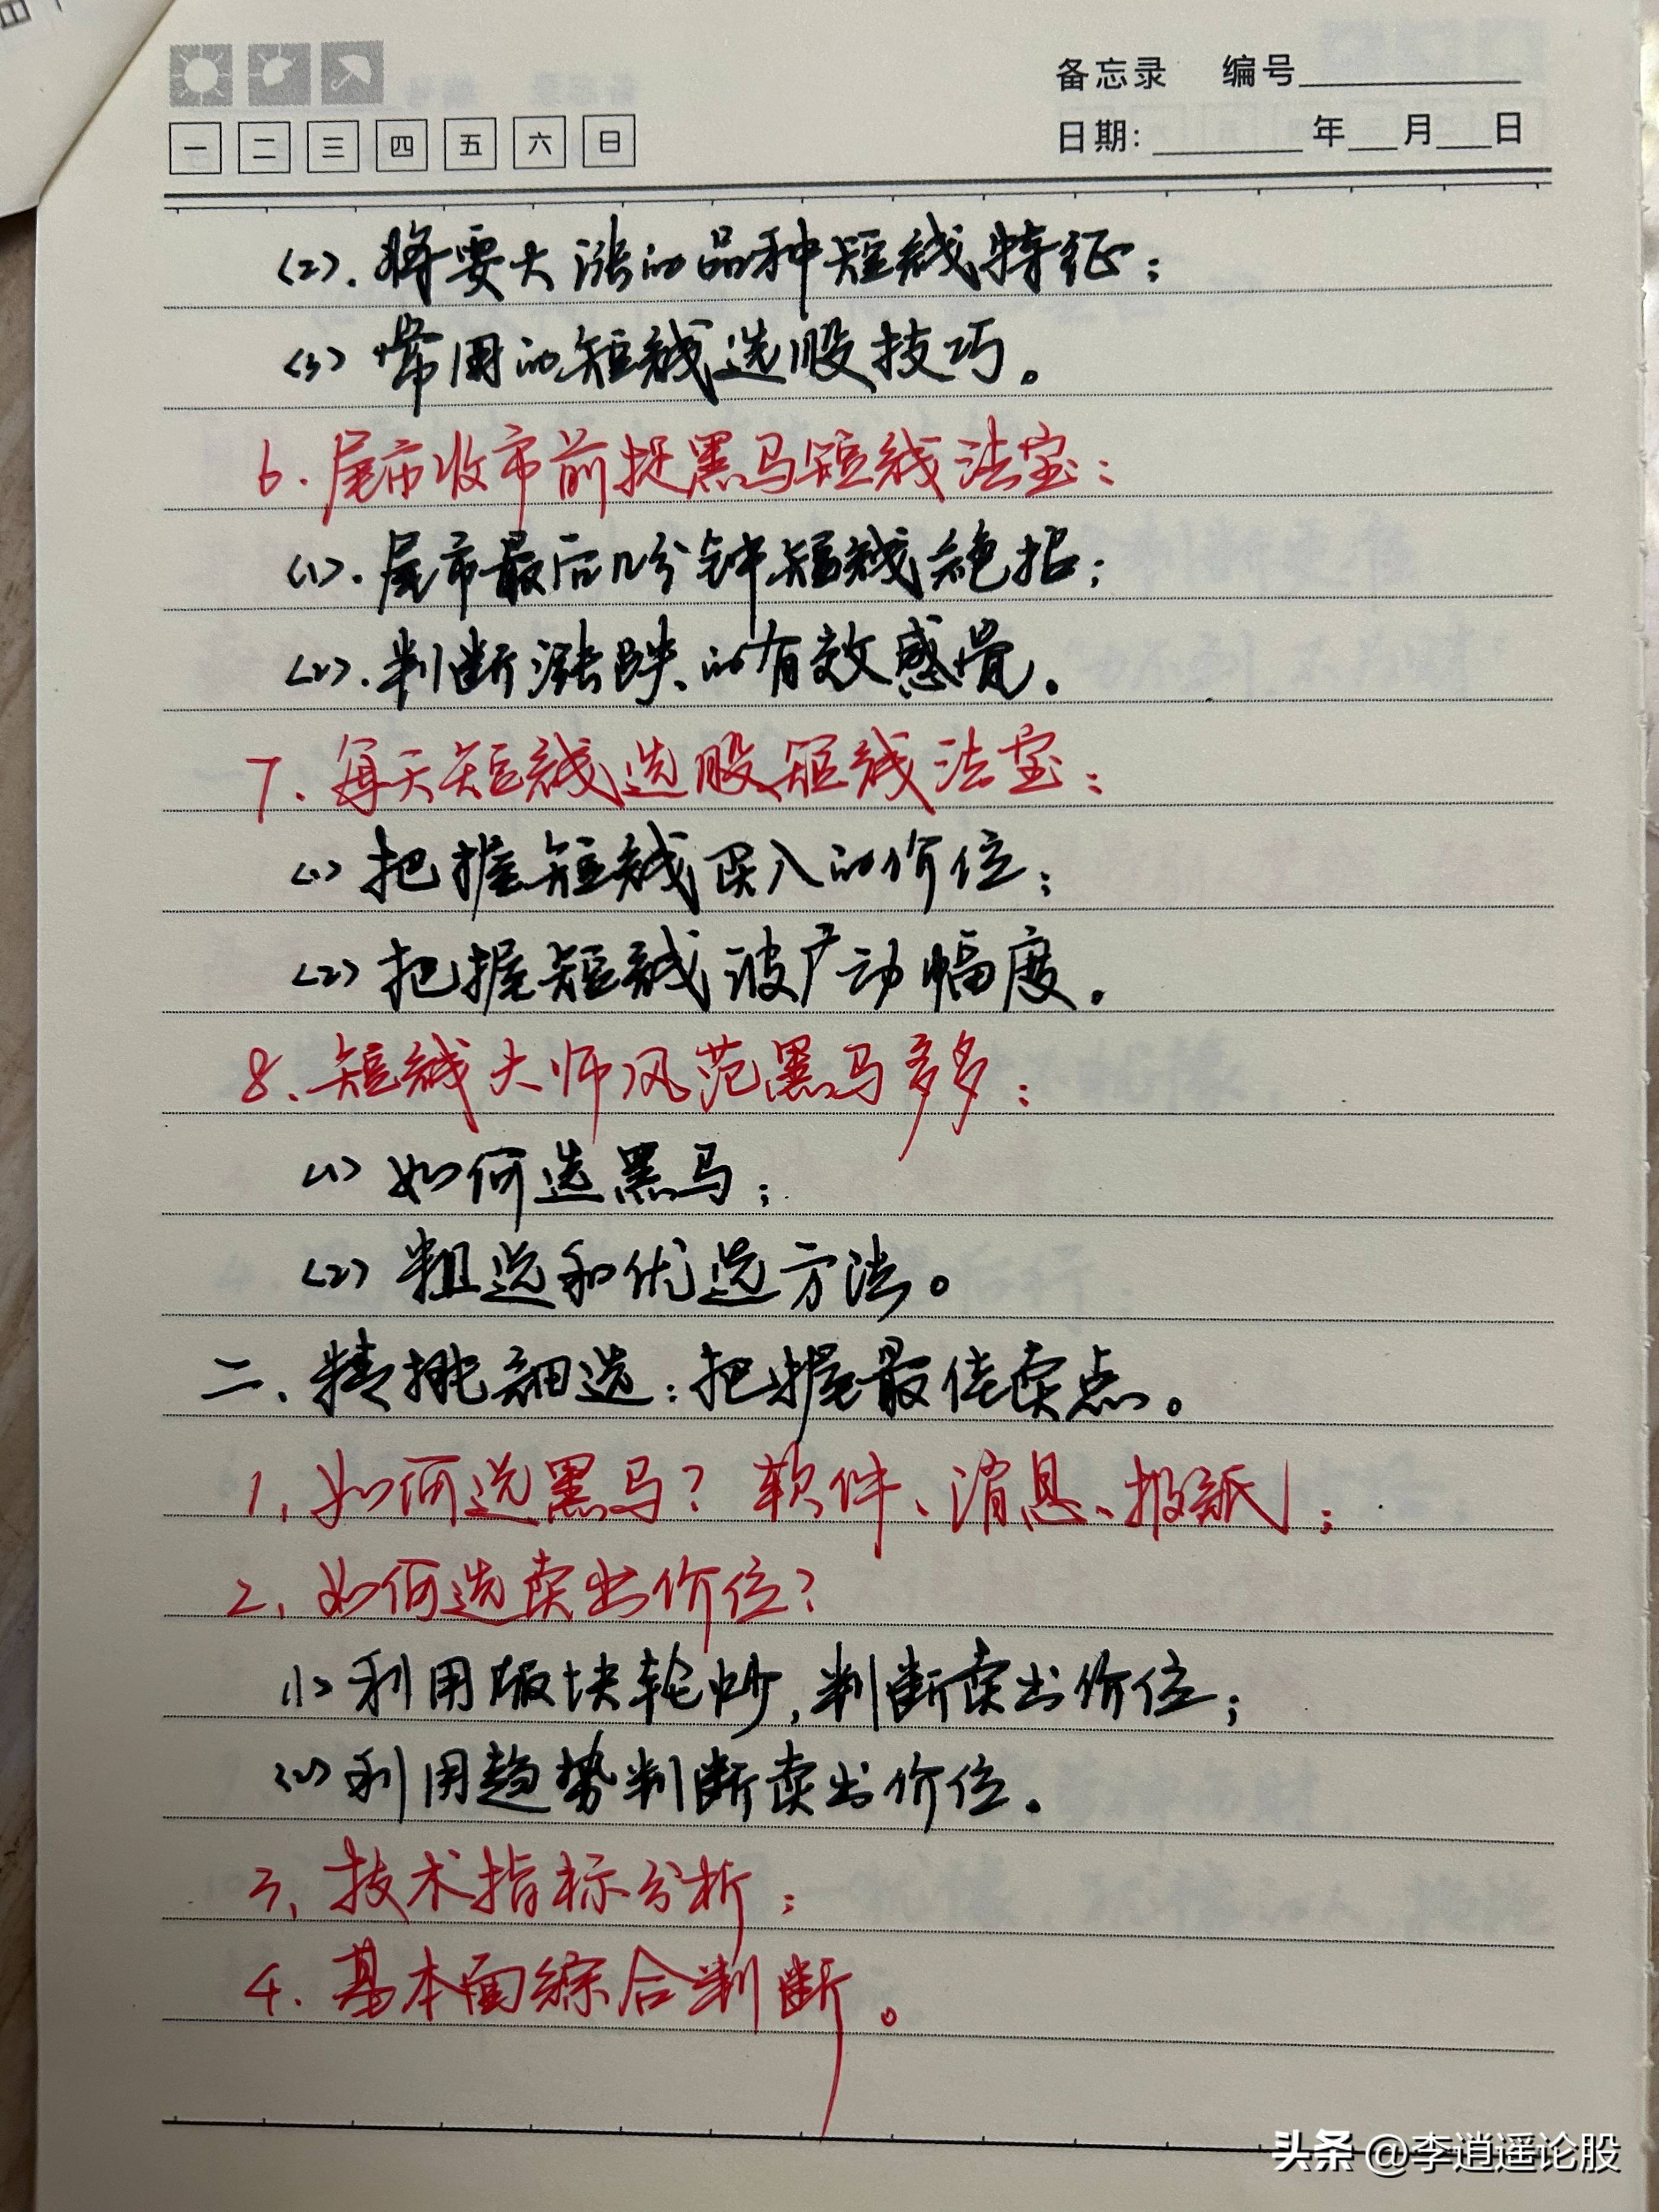 备忘录 编号
一 二 三 四 五 六 日
日期: 年 月 日
(2).将要大涨的品种短线特征;
(3)常用的短线选股技巧。
6.尾市收市前捉黑马短线法宝:
(1).尾市最后几分钟短线绝招;
(2).判断涨跌的有效感觉.
7.每天短线选股短线法宝:
(1)把握短线买入的价位;
(2)把握短线波广动幅度.
8.短线大师风范黑马多多:
(1)如何选黑马;
(2)粗选和优选方法。
二、精挑细选:把握最佳卖点。
1、如何选黑马?软件、消息、报纸;
2、如何选卖出价位?
(1)利用版块轮炒,判断卖出价位;
(2)利用趋势判断卖出价位.
3、技术指标分析;
4.基本面综合判断。
头条@李逍遥论股